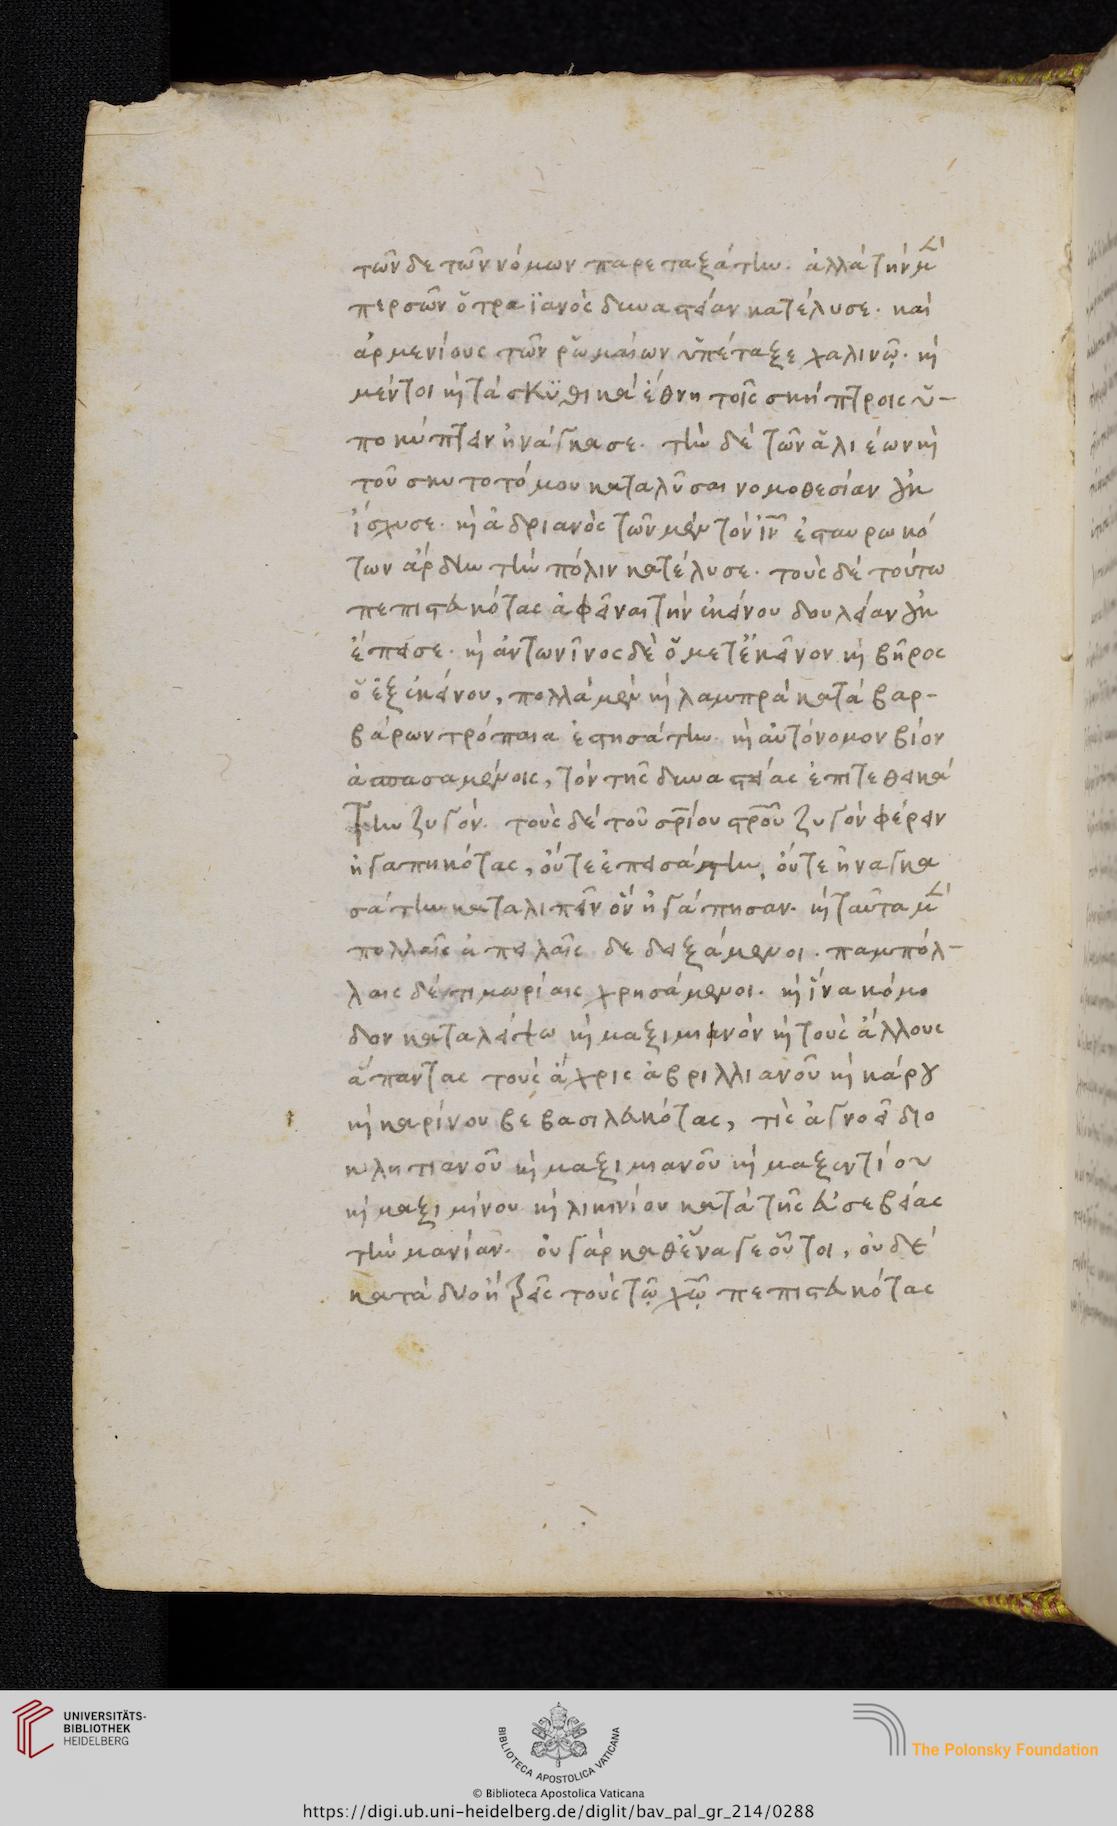 τῶνδε τῶν νόμων παρεταξάτην. ἀλλὰ τὴν μὲν
περσῶν ὁ τραϊανὸς δυναστείαν κατέλυσε. καὶ
ἀρμενίους τῶν ῥωμαίων ὑπέταξε χαλινῷ. καὶ
μέντοι καὶ τὰ σκϋθικὰ ἔθνη τοῖς σκήπτροις ὑ-
ποκύπτειν ἠνάγκασε. τὴν δὲ τῶν ἁλιέων καὶ
τοῦ σκυτοτόμου καταλῦσαι νομοθεσίαν οὐκ
ἴσχυσε. καὶ ἀδριανὸς τῶν μὲν τὸν ιν ἐσταυρωκό
των ἄρδην τὴν πόλιν κατέλυσε. τοὺς δὲ τούτω
πεπιστευκότας ἀφεῖναι τὴν ἐκείνου δουλείαν οὐκ
ἔπεισε. καὶ ἀντωνῖνος δὲ ὁ μετ' ἐκεῖνον καὶ βῆρος
ὁ ἐξ ἐκείνου, πολλὰ μὲν καὶ λαμπρὰ κατὰ βαρ-
βάρων τρόπαια ἐστησάτην. καὶ αὐτόνομον βίον
ἀσπασαμένοις, τὸν τῆς δυναστείας ἐπιτεθεικά
την ζυγόν. τοὺς δὲ τοῦ σρίου στροῦ ζυγὸν φέρειν
ἠγαπηκότας, οὔτε ἐπεισάτην, οὔτε ἠναγκα
σάτην καταλιπεῖν ὃν ἠγάπησαν. καὶ ταῦτα μὲν
πολλαῖς ἀπειλαῖς δεδειξάμενοι. παμπόλ-
λαις δὲ τιμωρίαις χρησάμενοι. καὶ ἵνα κόμο
δον καταλείψω καὶ μαξιμιανὸν καὶ τοὺς ἄλλους
ἅπαντας τοὺς ἄχρις ἀβριλλιανοῦ καὶ κάρου
καὶ καρίνου βεβασιλευκότας, τίς ἀγνοεῖ διο
κλητιανοῦ καὶ μαξιμιανοῦ καὶ μαξεντίου
καὶ μαξιμίνου καὶ λικινίου κατὰ τῆς εὐσεβείας
τὴν μανίαν. οὐ γὰρ καθ' ἕνα γε οὗτοι, οὐδὲ
κατὰ δύο ἢ τρεῖς τοὺς τῷ χῷ πεπιστευκότας
UNIVERSITÄTS-
BIBLIOTHEK
HEIDELBERG
BIBLIOTECA APOSTOLICA VATICANA
The Polonsky Foundation
© Biblioteca Apostolica Vaticana
https://digi.ub.uni-heidelberg.de/diglit/bav_pal_gr_214/0288